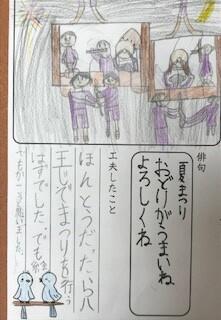 俳句
夏まつり
おどりがうまいね
よろしくね
工夫したこと
ほんとうだったら八
王じでまつりを行う
はずでした。でも絵
でもかこうと思いました。